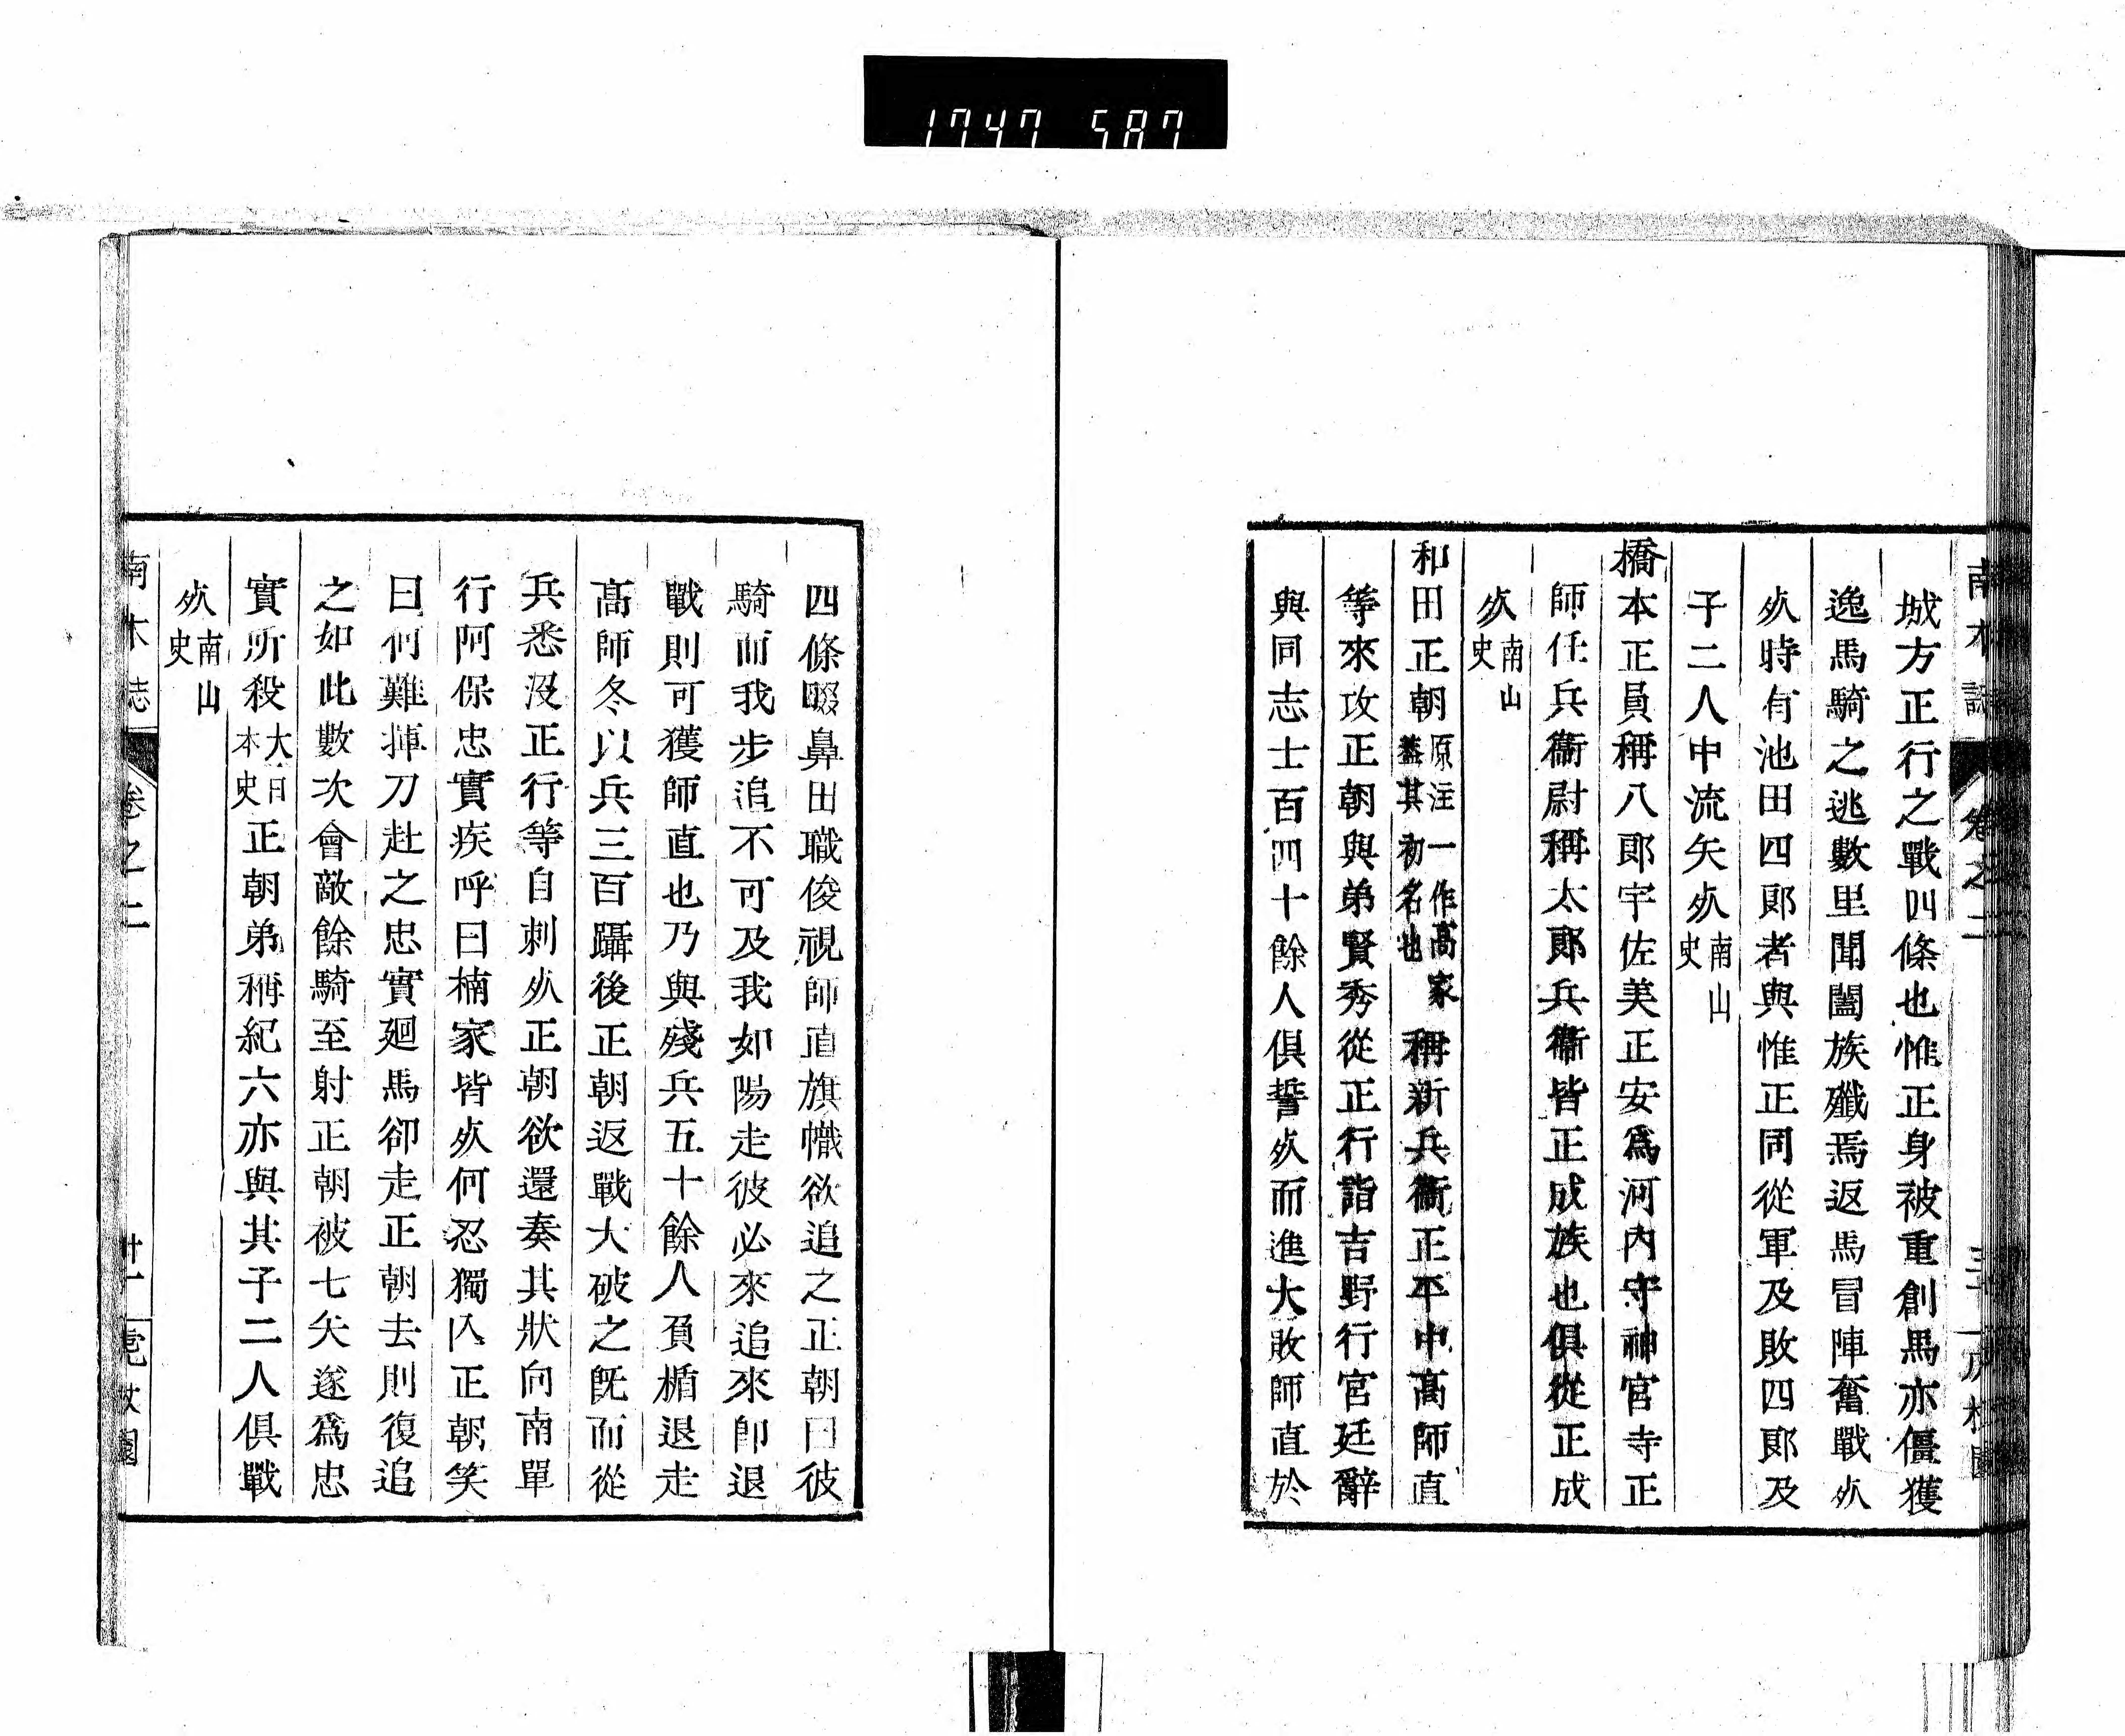 1747 587
南木誌 卷之二
城方正行之戰四條也惟正身被重創馬亦僵獲
逸馬騎之逃數里聞闔族殲焉返馬冒陣奮戰㱾
㱾時有池田四郎者與惟正同從軍及敗四郎及
子二人中流矢㱾南山史
橋本正員稱八郎宇佐美正安爲河内守神宮寺正
師任兵衞尉稱太郎兵衞皆正成族也俱從正成
㱾南山史
和田正朝原注一作高家蓋其初名也稱新兵衞正平中高師直
等來攻正朝與弟賢秀從正行詣吉野行宮廷辭
與同志士百四十餘人俱誓㱾而進大敗師直於
四條畷鼻田職俊視師直旗幟欲追之正朝曰彼
騎而我步追不可及我如陽走彼必來追來卽退
戰則可獲師直也乃與殘兵五十餘人負楯退走
高師冬以兵三百躡後正朝返戰大破之旣而從
兵悉沒正行等自刺㱾正朝欲還奏其狀向南單
行阿保忠實疾呼曰楠家皆㱾何忍獨入正朝笑
曰何難揮刀赴之忠實廻馬卻走正朝去則復追
之如此數次會敵餘騎至射正朝被七矢遂爲忠
實所殺大日本史正朝弟稱紀六亦與其子二人俱戰
㱾南山史
南木誌 卷之二 廿一